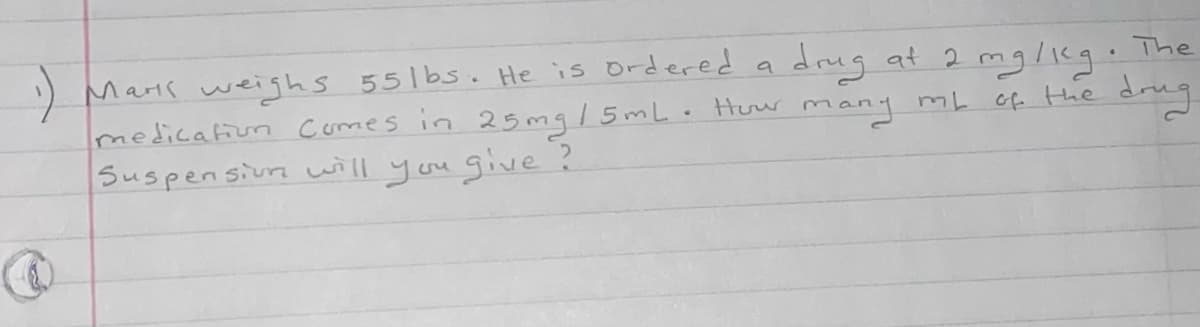 1) Mark weighs 55 lbs. He is ordered a drug at 2 mg/kg. The
medication comes in 25mg/5mL. How many mL of the drug
Suspension will you give?